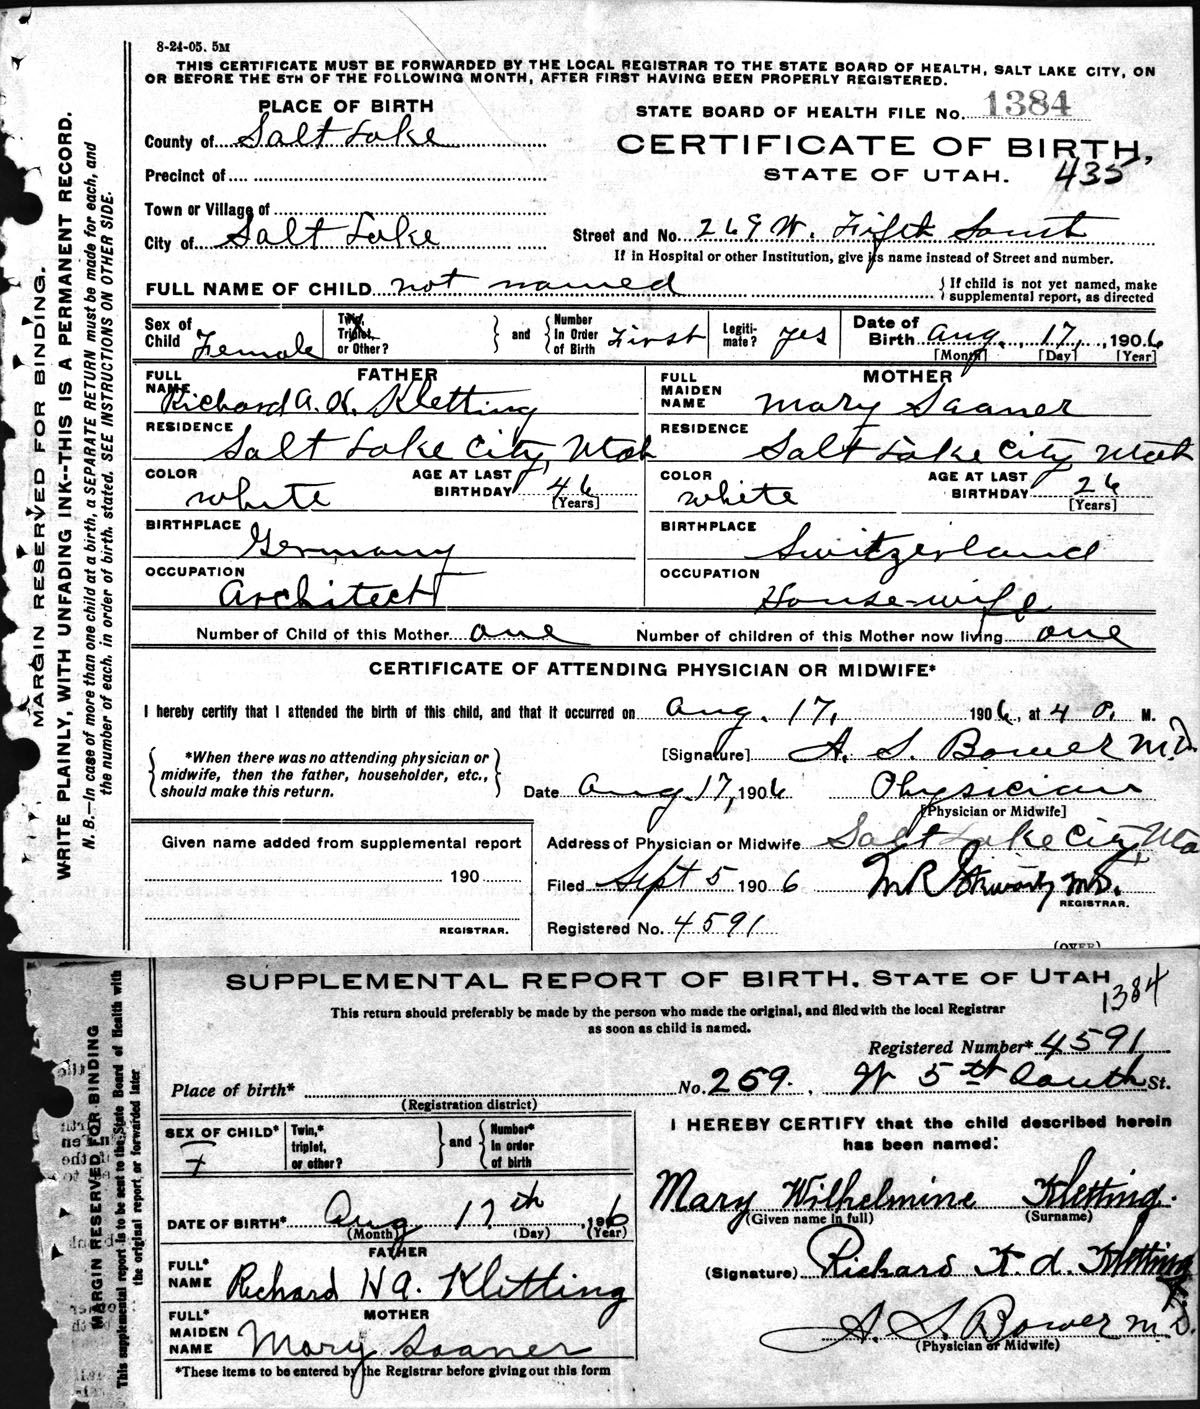 8-24-05. 5M
THIS CERTIFICATE MUST BE FORWARDED BY THE LOCAL REGISTRAR TO THE STATE BOARD OF HEALTH, SALT LAKE CITY, ON
OR BEFORE THE 5TH OF THE FOLLOWING MONTH, AFTER FIRST HAVING BEEN PROPERLY REGISTERED.
PLACE OF BIRTH
STATE BOARD OF HEALTH FILE No. 1384
County of Salt Lake
CERTIFICATE OF BIRTH,
Precinct of
STATE OF UTAH. 435
Town or Village of
City of Salt Lake
Street and No. 269 W. Fifth South
If in Hospital or other Institution, give its name instead of Street and number.
FULL NAME OF CHILD not named
If child is not yet named, make
supplemental report, as directed
Sex of Child Female
Twin, Triplet, or Other? and Number In Order of Birth First
Legiti-mate? yes
Date of Birth Aug. 17, 1906
[Month] [Day] [Year]
FATHER
FULL NAME Richard A. K. Kletting
RESIDENCE Salt Lake City, Utah
COLOR white
AGE AT LAST BIRTHDAY 46 [Years]
BIRTHPLACE Germany
OCCUPATION Architect
MOTHER
FULL MAIDEN NAME Mary Saaner
RESIDENCE Salt Lake City Utah
COLOR white
AGE AT LAST BIRTHDAY 26 [Years]
BIRTHPLACE Switzerland
OCCUPATION House-wife
Number of Child of this Mother one Number of children of this Mother now living one
CERTIFICATE OF ATTENDING PHYSICIAN OR MIDWIFE*
I hereby certify that I attended the birth of this child, and that it occurred on Aug. 17, 1906, at 4 P. M.
*When there was no attending physician or
midwife, then the father, householder, etc.,
should make this return.
[Signature] A. S. Bower M.D.
Date Aug 17, 1906 Physician
[Physician or Midwife]
Given name added from supplemental report
190
REGISTRAR.
Address of Physician or Midwife Salt Lake City, Uta
Filed Sept 5 1906 M R Stewart M.D.
REGISTRAR.
Registered No. 4591
(OVER)
MARGIN RESERVED FOR BINDING.
WRITE PLAINLY, WITH UNFADING INK--THIS IS A PERMANENT RECORD.
N. B.—In case of more than one child at a birth, a SEPARATE RETURN must be made for each, and
the number of each. in order of birth. stated. SEE INSTRUCTIONS ON OTHER SIDE.
SUPPLEMENTAL REPORT OF BIRTH. STATE OF UTAH
1384
This return should preferably be made by the person who made the original, and filed with the local Registrar
as soon as child is named.
Registered Number* 4591
Place of birth* No. 269. W 5th South St.
(Registration district)
SEX OF CHILD* F
Twin,* triplet, or other? and Number* in order of birth
DATE OF BIRTH* Aug 17th, 1906
(Month) (Day) (Year)
FATHER
FULL* NAME Richard K A. Kletting
MOTHER
FULL* MAIDEN NAME Mary Saaner
*These items to be entered by the Registrar before giving out this form
I HEREBY CERTIFY that the child described herein
has been named:
Mary Wilhelmine Kletting.
(Given name in full) (Surname)
(Signature) Richard K. A. Kletting
A. S. Bower M.D.
(Physician or Midwife)
MARGIN RESERVED FOR BINDING
This supplemental report is to be sent to the State Board of Health with
the original report, or forwarded later